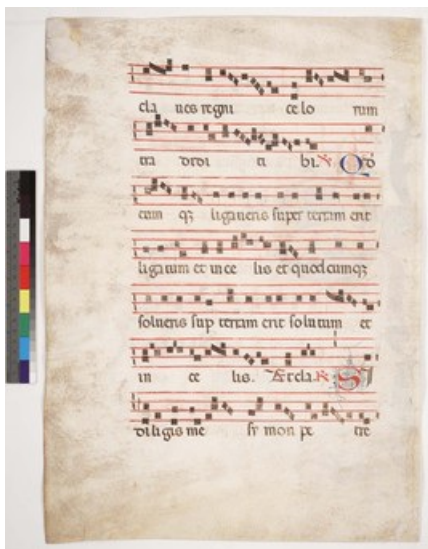 cla ues regni ce lo rum
tra didi ti bi. Qd
cum qꝫ ligaueris super terram erit
ligatum et in ce lis et quodcumqꝫ
solueris sup terram erit solutum et
in ce lis. Et cla. SI
diligis me sy mon pe tre